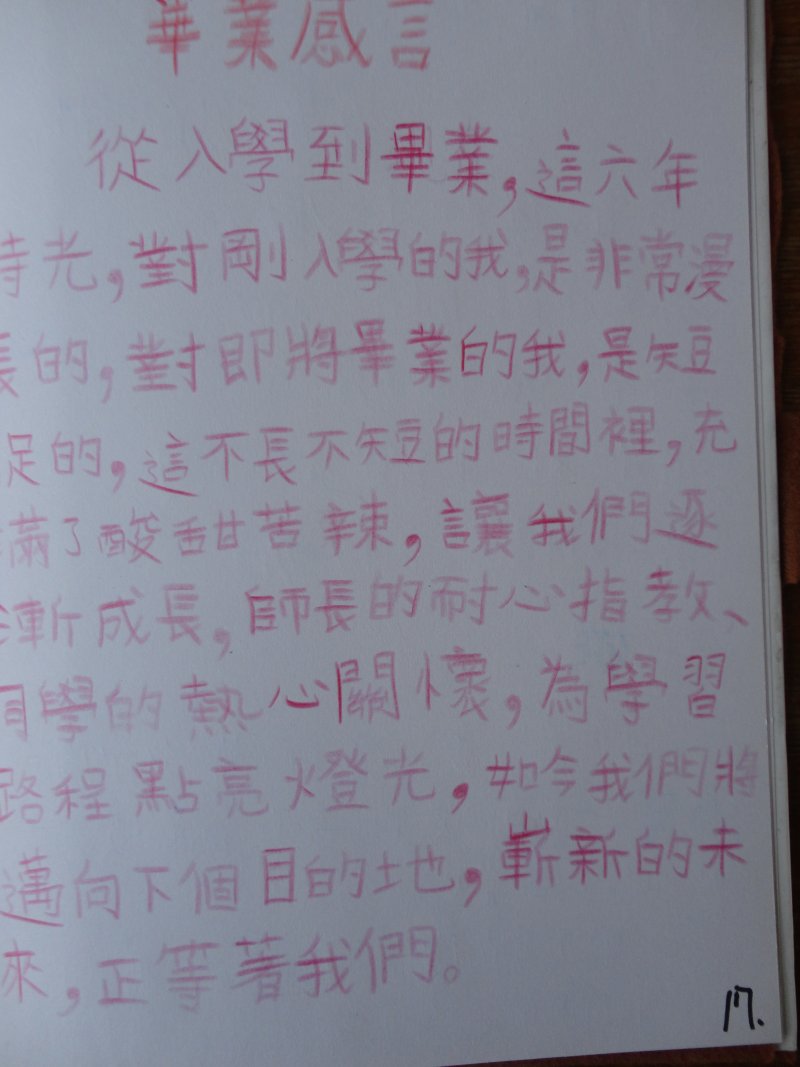 畢業感言
從入學到畢業,這六年
時光,對剛入學的我,是非常漫
長的,對即將畢業的我,是短
促的,這不長不短的時間裡,充
滿了酸甜苦辣,讓我們逐
漸成長,師長的耐心指教、
同學的熱心關懷,為學習
路程點亮燈光,如今我們將
邁向下個目的地,嶄新的未
來,正等著我們。
17.